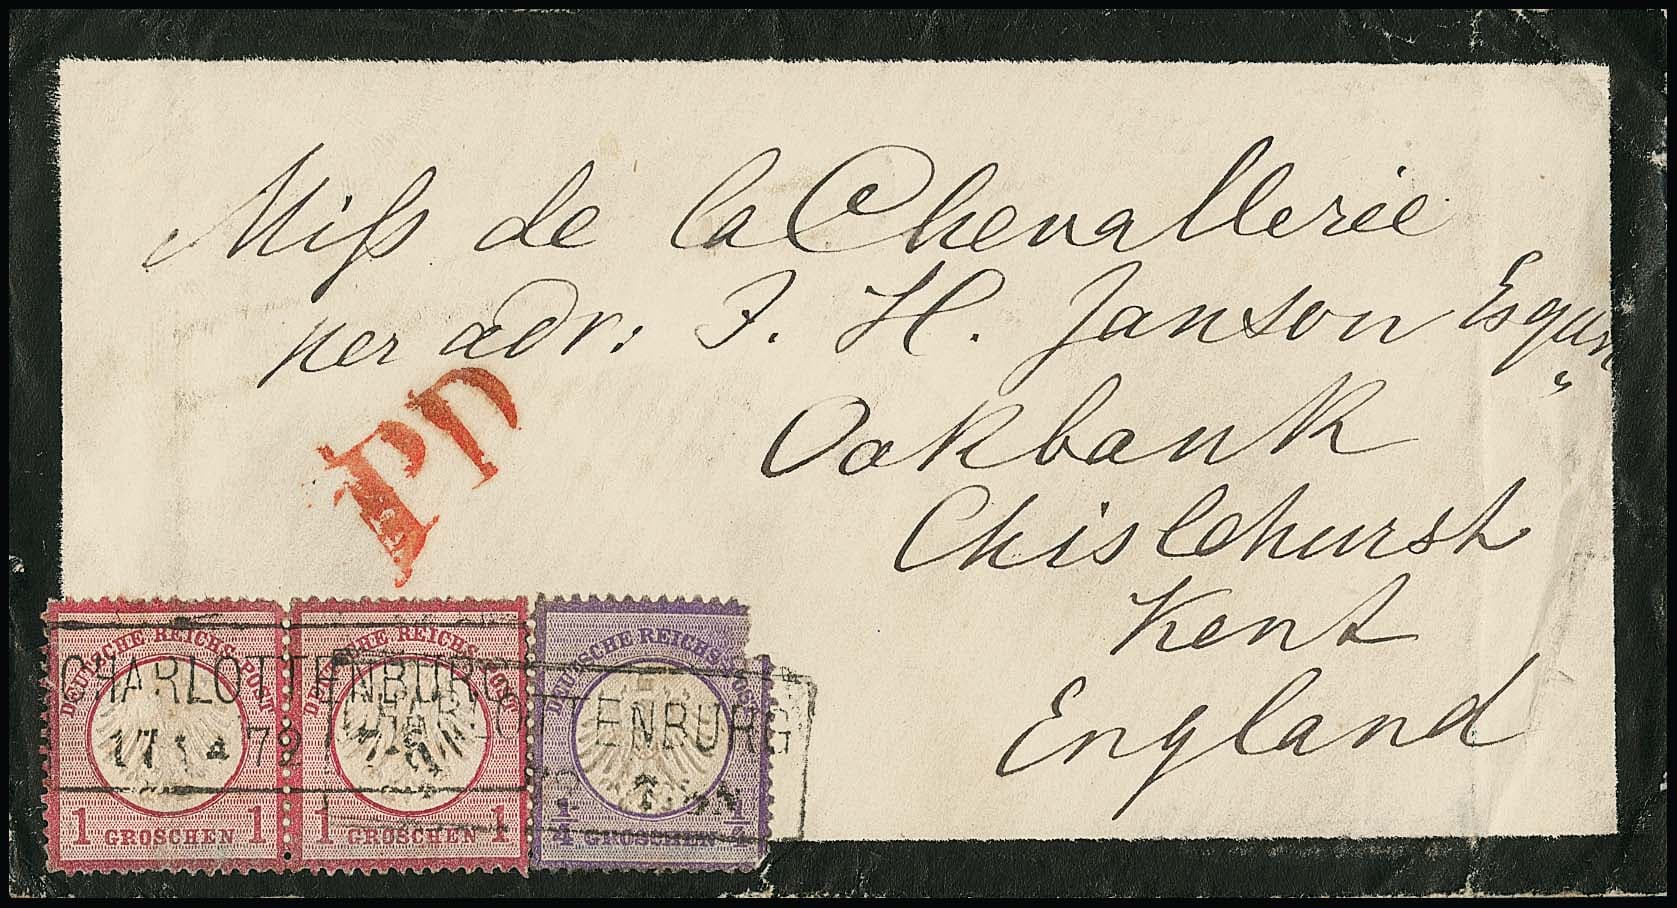 Miss de la Chevallerie
per adr: F. H. Janson Esqur
Oakbank
Chislehurst
Kent
England
PD
DEUTSCHE REICHS-POST
1 GROSCHEN 1
DEUTSCHE REICHS-POST
1 GROSCHEN 1
DEUTSCHE REICHS-POST
1/4 GROSCHEN 1/4
CHARLOTTENBURG
17 4 72
CHARLOTTENBURG